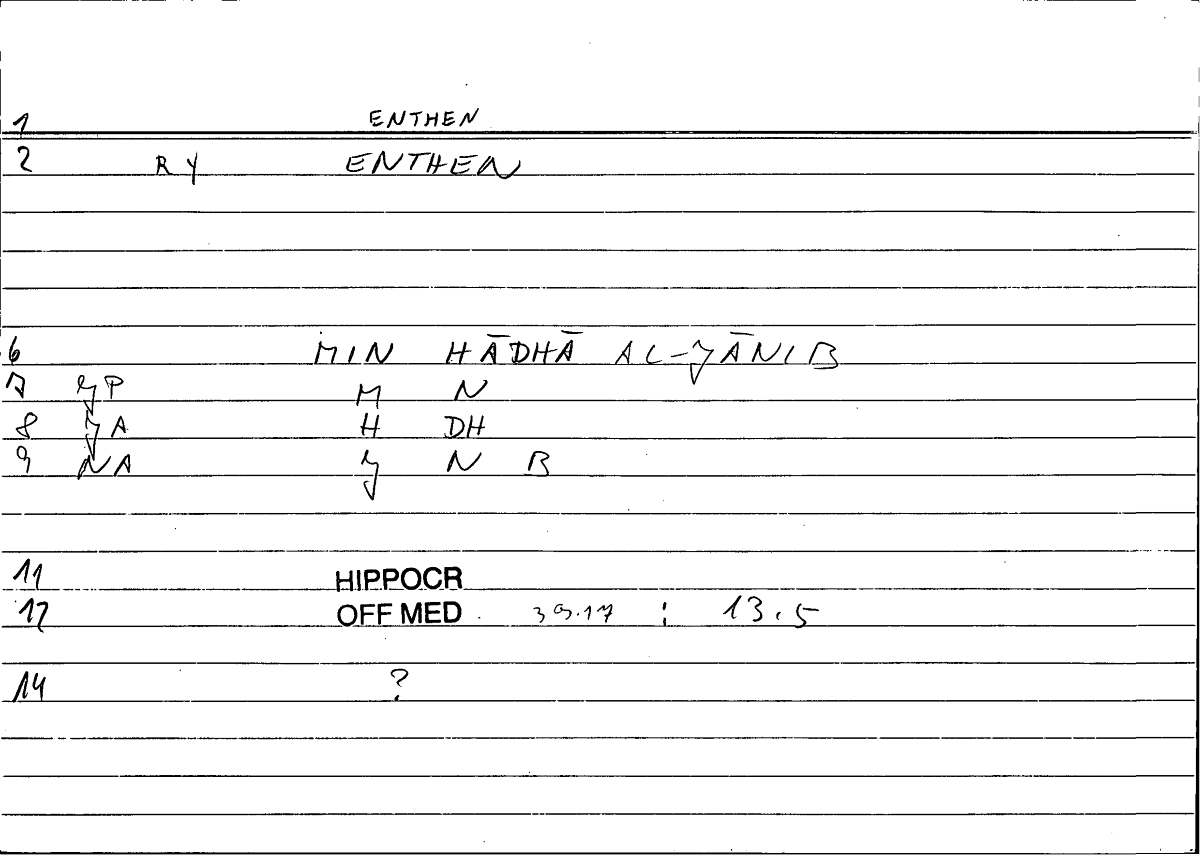 1 ENTHEN
2 RY ENTHEN
6 MIN HĀDHĀ AL-JĀNIB
7 JP M N
8 JA H DH
9 NA J N B
11 HIPPOCR
12 OFF MED 39.17 : 13.5
14 ?